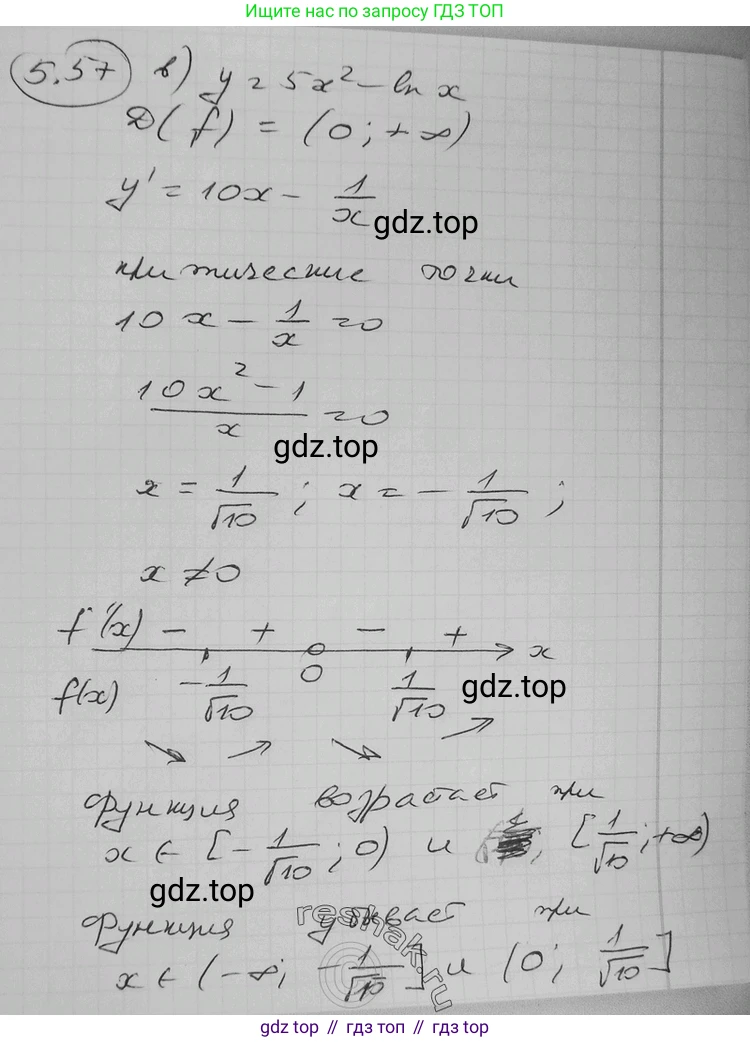 Ищите нас по запросу ГДЗ ТОП
5.57 в) y = 5x² - ln x
D(f) = (0; +∞)
y' = 10x - 1/x
gdz.top
критические точки
10x - 1/x = 0
(10x² - 1)/x = 0
gdz.top
x = 1/√10 ; x = - 1/√10 ;
x ≠ 0
f'(x) - + - + x
f(x) -1/√10 0 1/√10
gdz.top
функция возрастает при
x ∈ [-1/√10; 0) и [1/√10; +∞)
gdz.top
функция убывает при
reshak.ru
x ∈ (-∞; -1/√10] и (0; 1/√10]
gdz.top // гдз топ // gdz.top